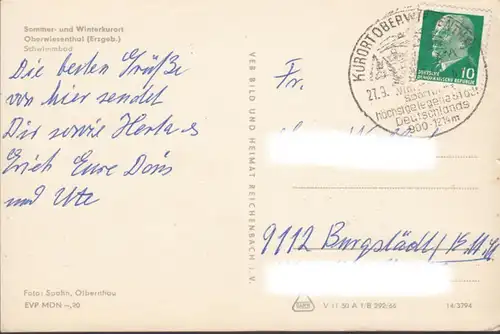 Sommer- und Winterkurort
Oberwiesenthal (Erzgeb.)
Schwimmbad
Die besten Grüße
von hier sendet
Dir sowie Herta u.
Erich Eure Doris
und Ute
Foto: Spalin, Olbernhau
EVP MDN –,20
VEB BILD UND HEIMAT REICHENBACH I. V.
KURORT OBERW
27.9.
höchstgelegene Stadt
Deutschlands
900-1214m
DEUTSCHE
DEMOKRATISCHE REPUBLIK
10
Fr.
9112 Burgstädt/
V 11 50 A 1/B 292/66
14/3794